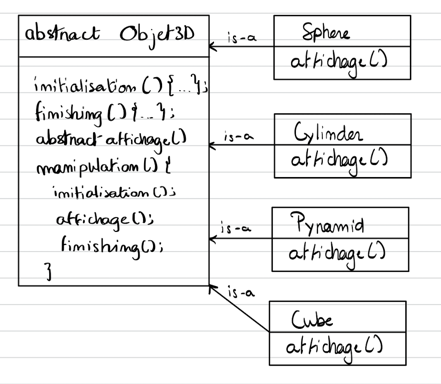 abstract Objet3D
initialisation () {...};
finishing () {...};
abstract affichage()
manipulation () {
initialisation ();
affichage ();
finishing ();
}
is-a
Sphere
affichage ()
is-a
Cylinder
affichage ()
is-a
Pyramid
affichage ()
is-a
Cube
affichage ()